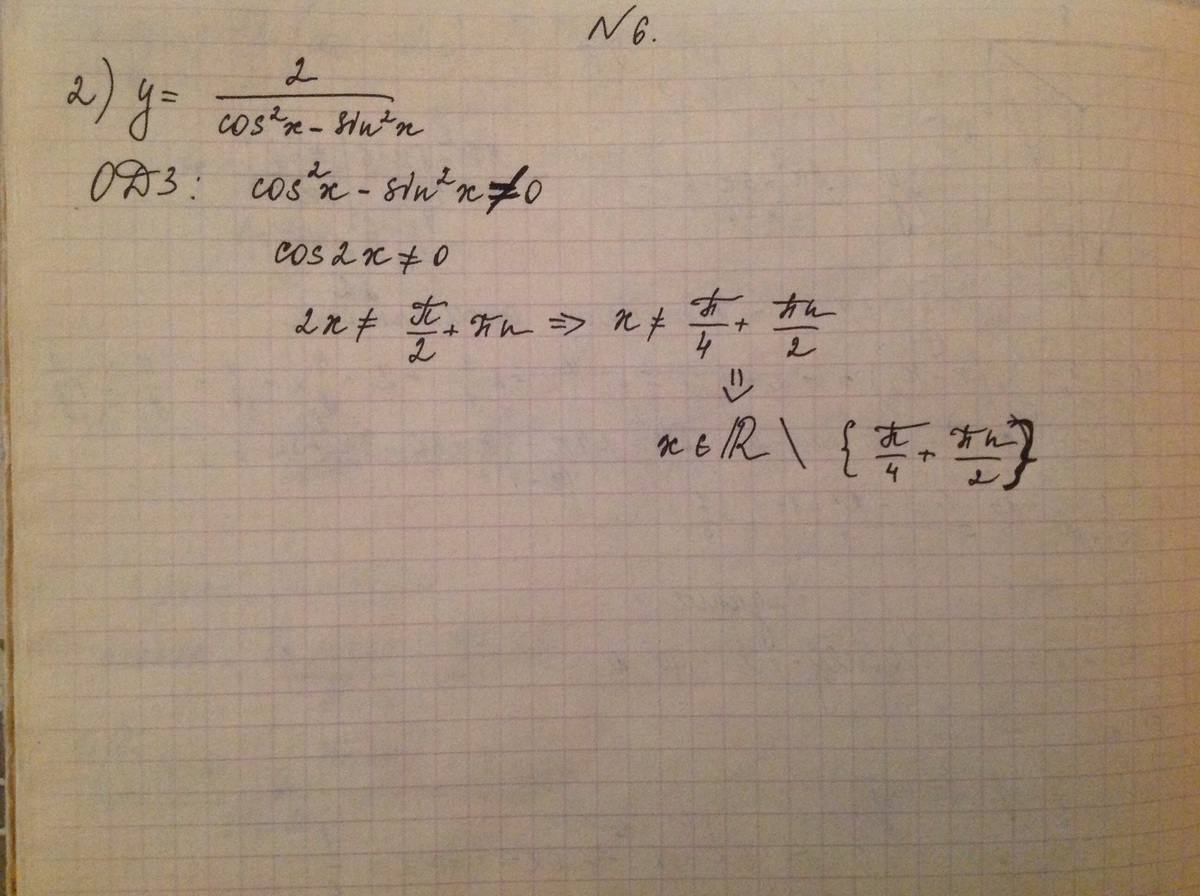 N 6.
2) y = 2 / (cos²x - sin²x)
ОДЗ: cos²x - sin²x ≠ 0
cos2x ≠ 0
2x ≠ π/2 + πn ⇒ x ≠ π/4 + πn/2
⇓
x ∈ ℝ \ { π/4 + πn/2 }